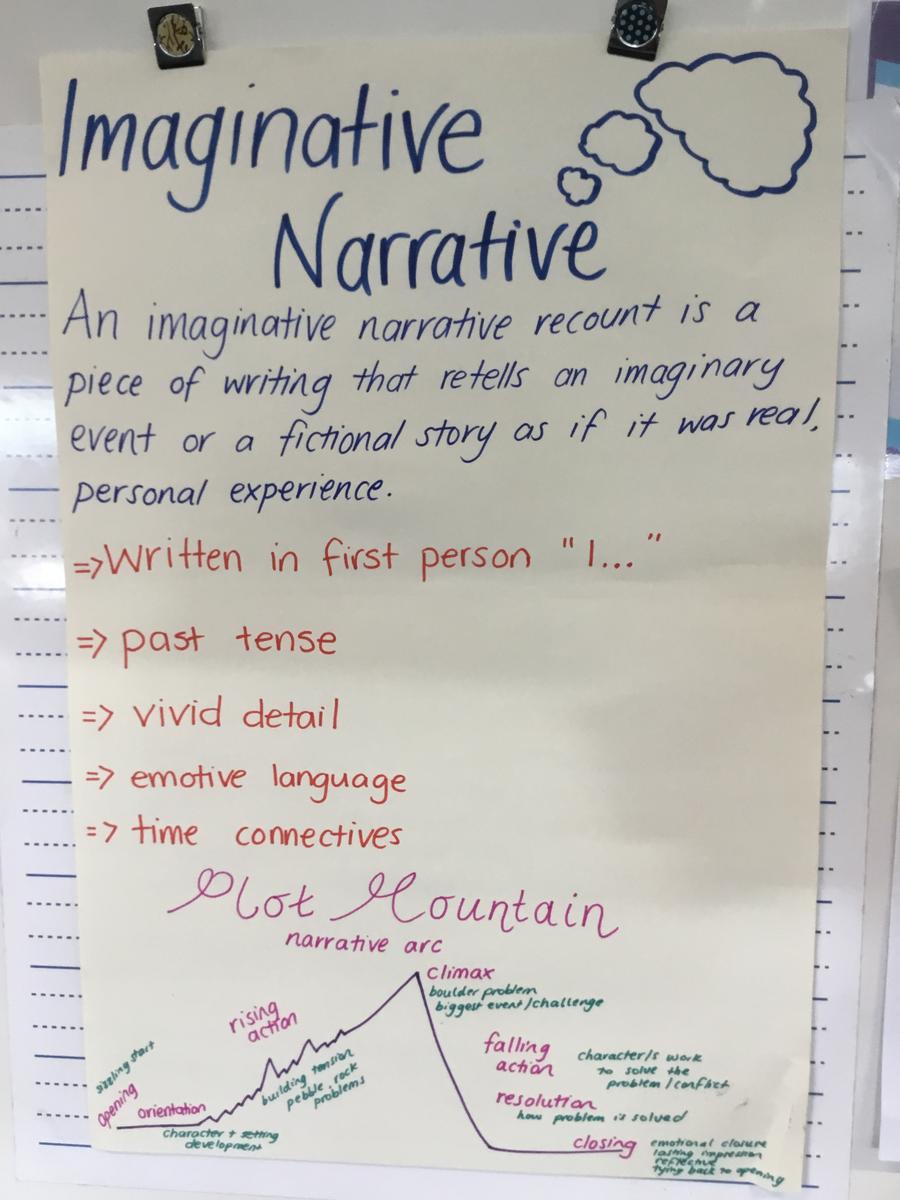 Imaginative
Narrative
An imaginative narrative recount is a
piece of writing that retells an imaginary
event or a fictional story as if it was real,
personal experience.
=> Written in first person "I..."
=> past tense
=> vivid detail
=> emotive language
=> time connectives
Plot Mountain
narrative arc
climax
boulder problem
biggest event/challenge
rising
action
building tension
pebble, rock
problems
sizzling start
opening
orientation
character + setting
development
falling
action
character/s work
to solve the
problem/conflict
resolution
how problem is solved
closing
emotional closure
lasting impression
reflective
tying back to opening